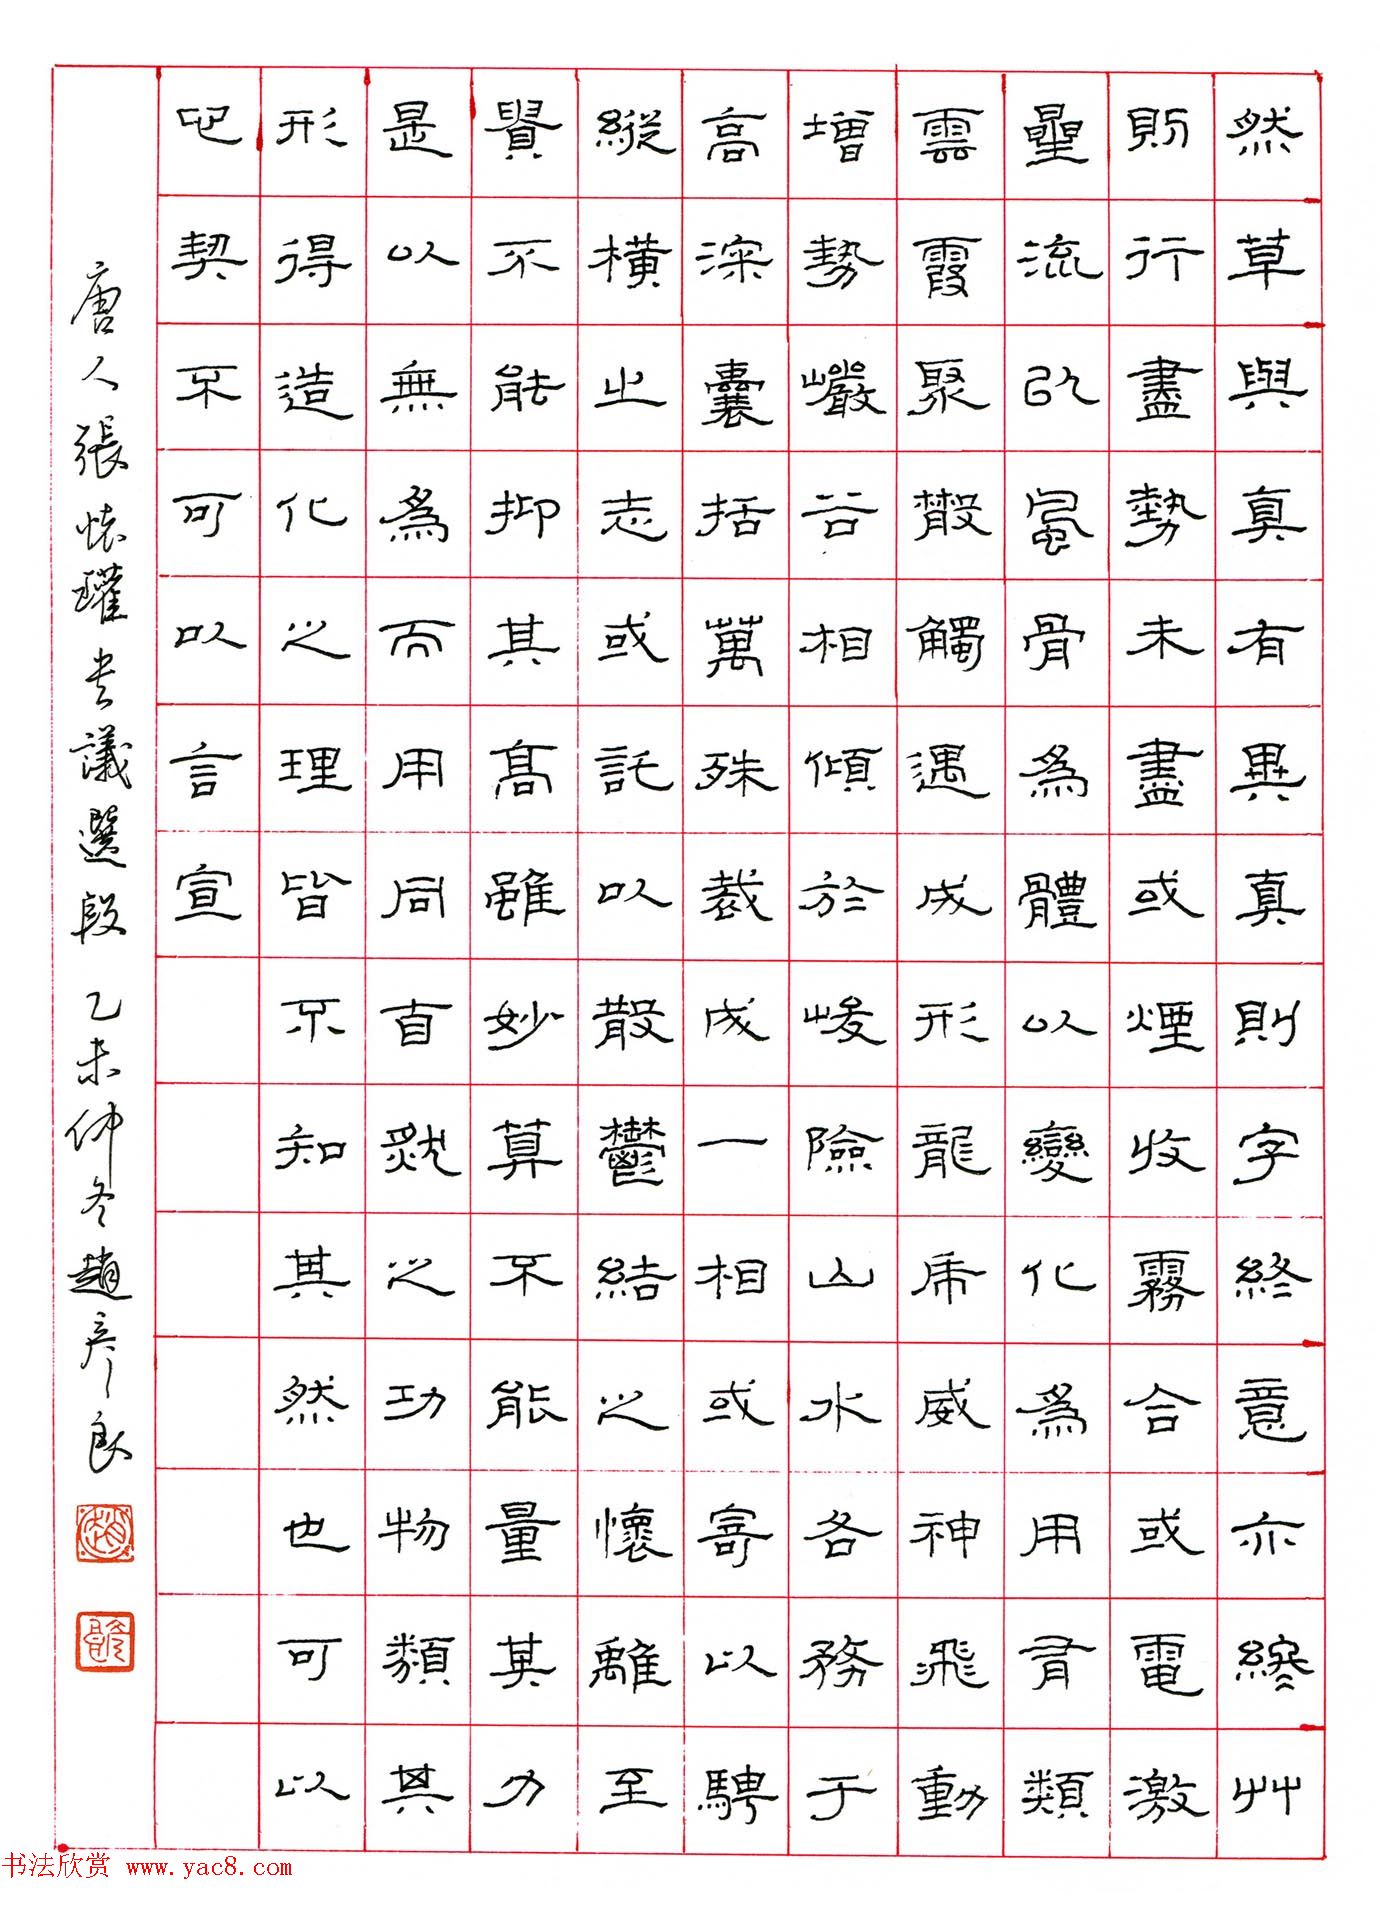 然草與真有異真則字終意亦終艸
則行盡勢未盡或煙收霧合或電激
星流以風骨為體以變化為用有類
雲霞聚散觸遇成形龍虎威神飛動
增勢巖谷相傾於峻險山水各務于
高深囊括萬殊裁成一相或寄以騁
縱橫之志或託以散鬱結之懷雖至
貴不能抑其高雖妙算不能量其力
是以無為而用同自然之功物類其
形得造化之理皆不知其然也可以
心契不可以言宣
唐人張懷瓘书議選段 乙未仲冬趙彥良
书法欣赏 www.yac8.com